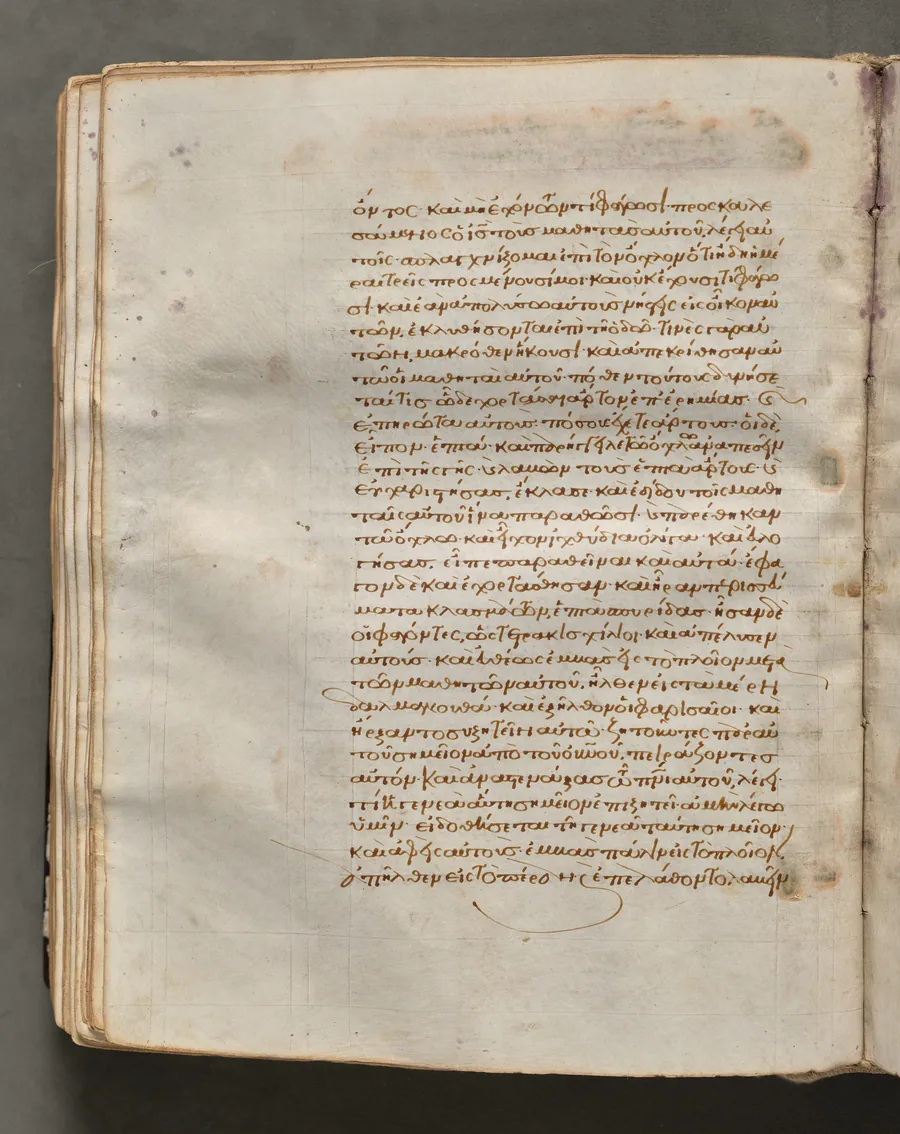 όντος· καὶ μὴ ἐχόντων τί φάγωσι· προσκαλε
σάμενος ὁ ῑς τοὺς μαθητὰς αὐτοῦ, λέγει αὐ
τοῖς· σπλαγχνίζομαι ἐπὶ τὸν ὄχλον ὅτι ἤδη ἡμέ
ραι τρεῖς προσμένουσί μοι· καὶ οὐκ ἔχουσι τί φάγω
σι· καὶ ἐὰν ἀπολύσω αὐτοὺς νήστεις εἰς οἶκον αὐ
τῶν, ἐκλυθήσονται ἐπὶ τῇ ὁδῷ· τινὲς γὰρ αὐ
τῶν, μακρόθεν ἥκουσι· καὶ ἀπεκρίθησαν αὐ
τῷ οἱ μαθηταὶ αὐτοῦ· πόθεν τούτους δυνήσε
ταί τις ὧδε χορτάσαι ἄρτον ἐπ' ἐρημίας· καὶ
ἐπηρώτα αὐτούς· πόσους ἔχετε ἄρτους· οἱ δὲ,
εἶπον· ἑπτά· καὶ παρήγγειλε τῷ ὄχλῳ ἀναπεσεῖν
ἐπὶ τῆς γῆς· καὶ λαβὼν τοὺς ἑπτὰ ἄρτους· καὶ
εὐχαριστήσας, ἔκλασε· καὶ ἐδίδου τοῖς μαθη
ταῖς αὐτοῦ ἵνα παραθῶσι· καὶ παρέθηκαν
τῷ ὄχλῳ· καὶ εἶχον ἰχθύδια ὀλίγα· καὶ εὐλο
γήσας, εἶπε παραθεῖναι καὶ αὐτά· ἔφα
γον δὲ καὶ ἐχορτάσθησαν· καὶ ἦραν περισσεύ
ματα κλασμάτων, ἑπτὰ σπυρίδας· ἦσαν δὲ
οἱ φαγόντες, ὡς τετρακισχίλιοι· καὶ ἀπέλυσεν
αὐτούς· καὶ εὐθέως ἐμβὰς εἰς τὸ πλοῖον μετὰ
τῶν μαθητῶν αὐτοῦ, ἦλθεν εἰς τὰ μέρη
δαλμανουθά· καὶ ἐξῆλθον οἱ φαρισαῖοι· καὶ
ἤρξαντο συζητεῖν αὐτῷ· ζητοῦντες παρ' αὐ
τοῦ σημεῖον ἀπὸ τοῦ οὐνοῦ, πειράζοντες
αὐτόν· καὶ ἀναστενάξας τῷ πνι αὐτοῦ, λέγει·
τί ἡ γενεὰ αὕτη σημεῖον ἐπιζητεῖ· ἀμὴν λέγω
ὑμῖν· εἰ δοθήσεται τῇ γενεᾷ ταύτῃ σημεῖον·
καὶ ἀφεὶς αὐτούς· ἐμβὰς πάλιν εἰς τὸ πλοῖον,
ἀπῆλθεν εἰς τὸ πέραν· καὶ ἐπελάθοντο λαβεῖν